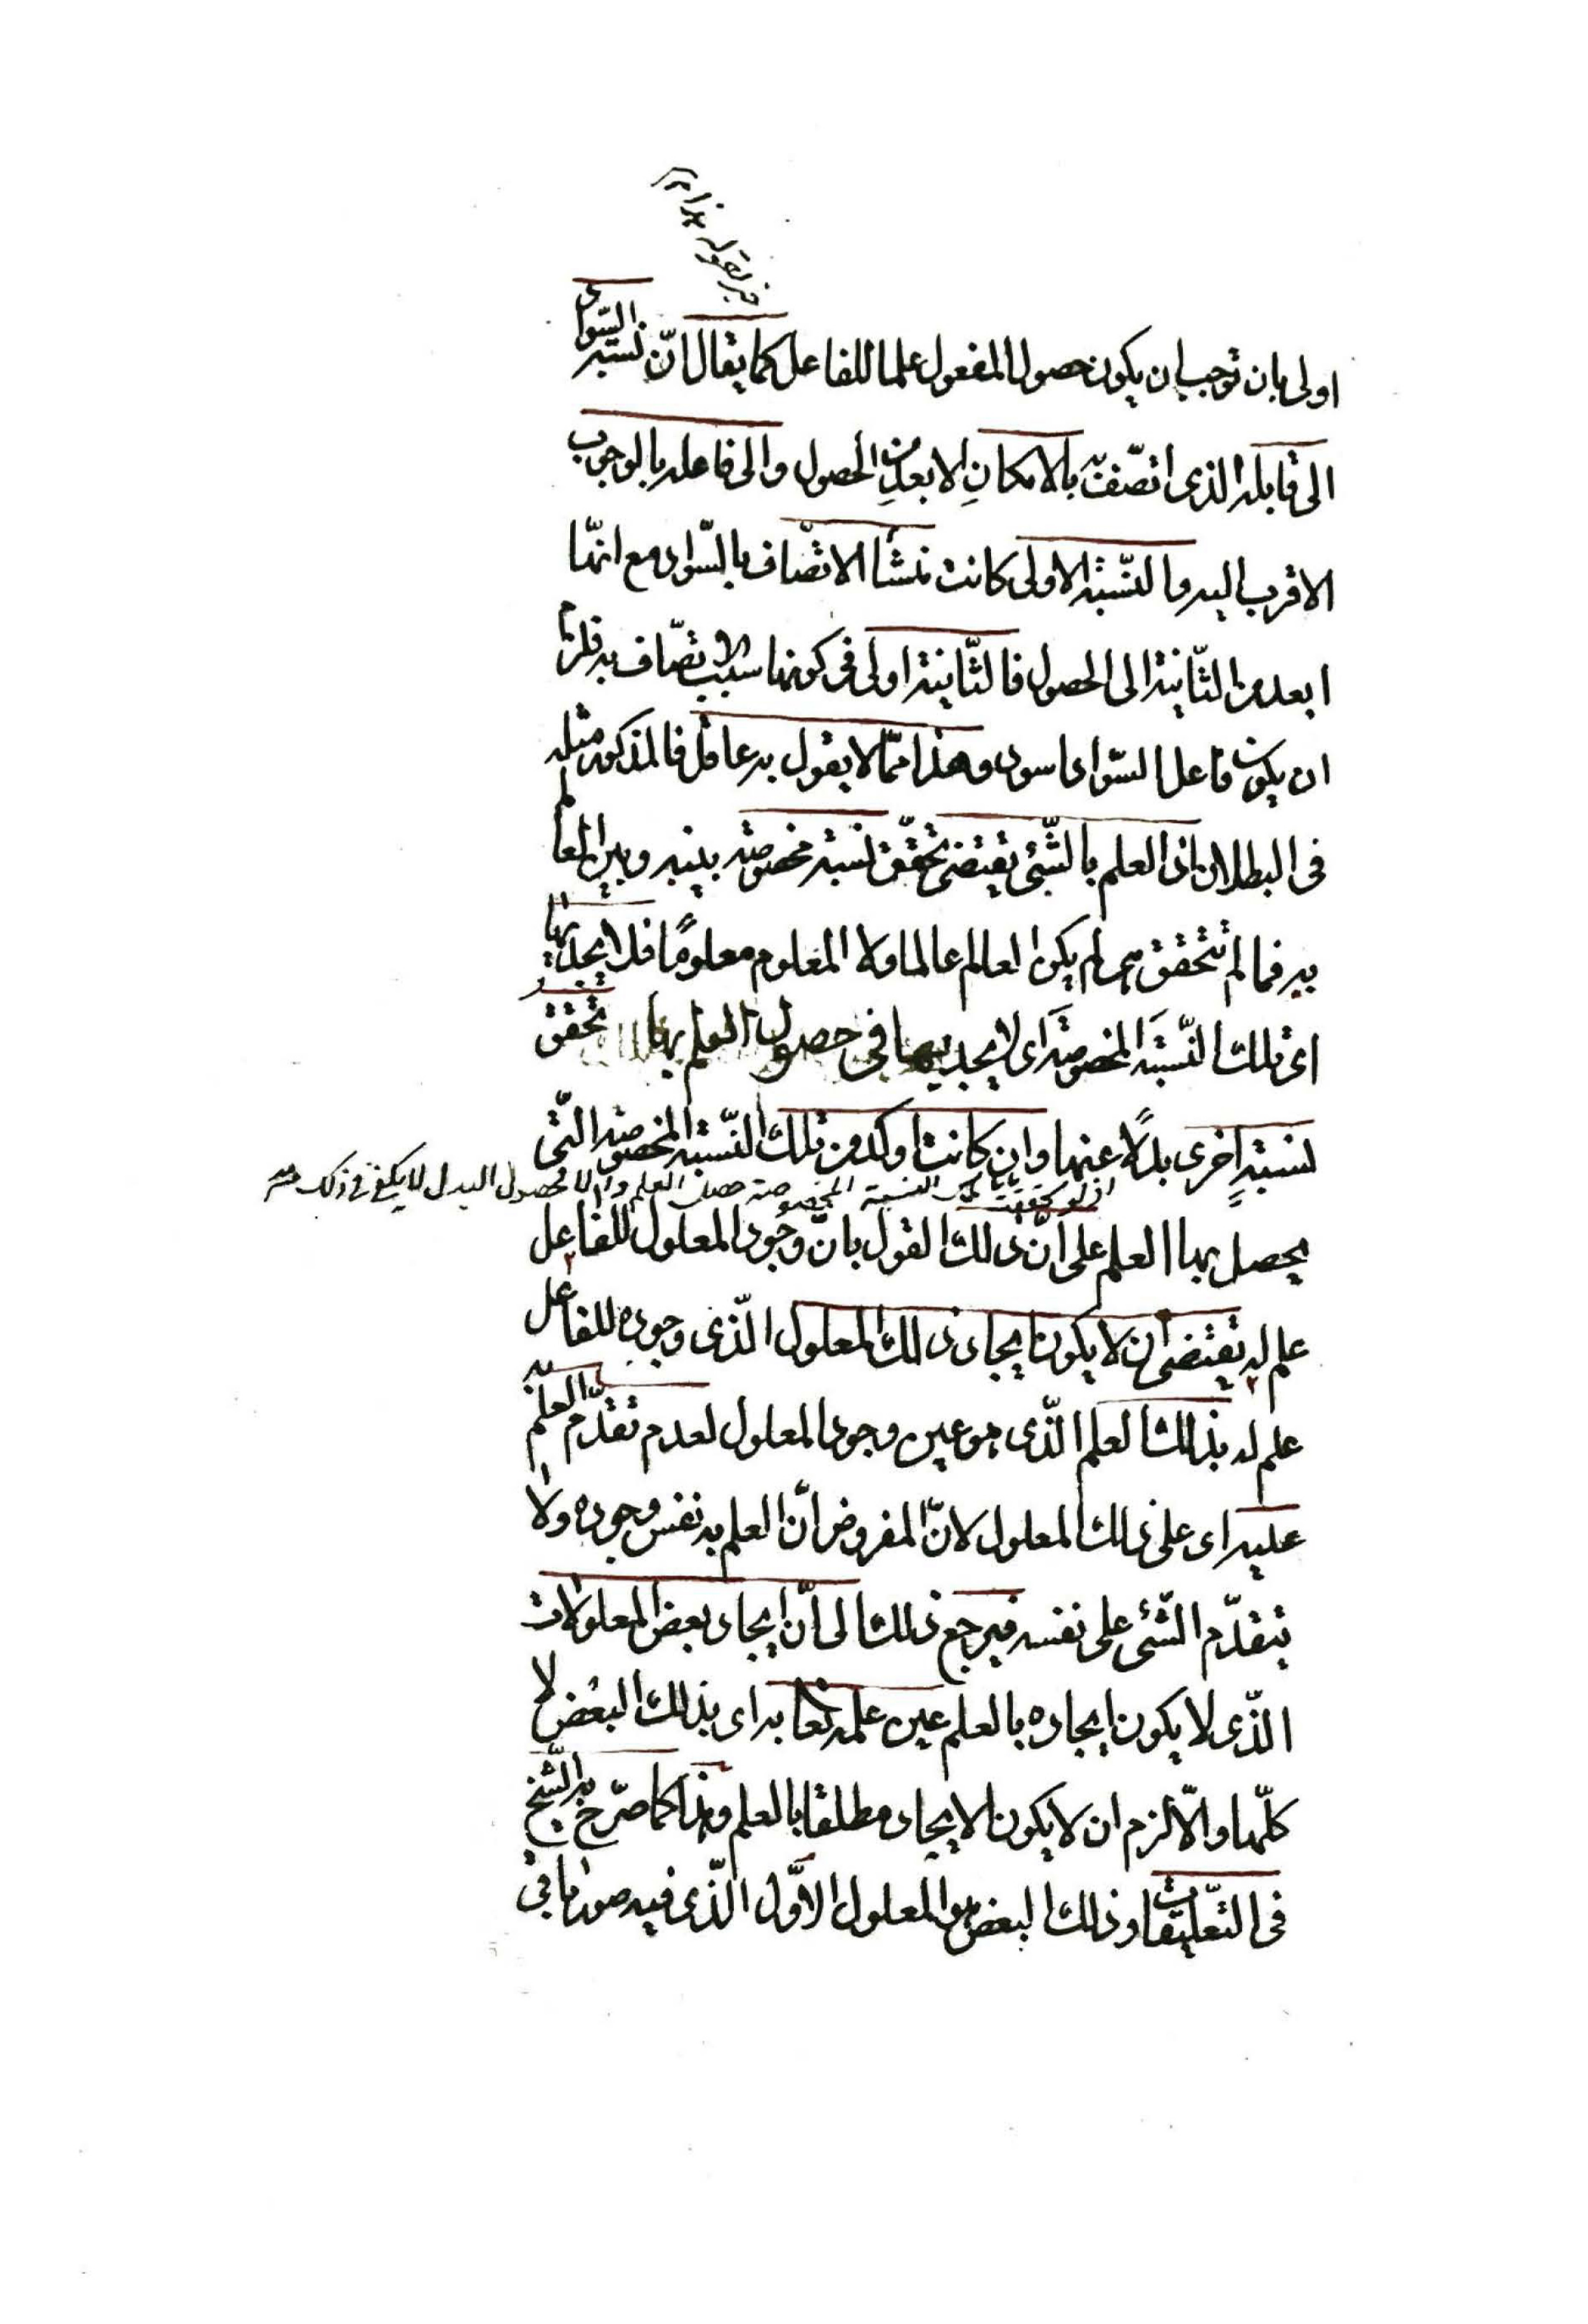 اولى بان توجب ان يكون حصول المفعول علما للفاعل كما يقال انّ نسبة السّواد
الى قابله الذى اتصّف به بالامكانِ الابعدِ من الحصول والى فاعله بالوجوب
الاقرب اليه والنّسبة الاولى كانت منشأ الاتصاف بالسّواد مع انهّا
ابعد من الثّانية الى الحصول فالثّانية اولى فى كونها سبب الاتصّاف به فلزم
ان يكون فاعل السّواد اسود وهذا ممّا لا يقول به عاقل فالمذكور مثله
فى البطلان اذ العلم بالشّئ يقتضى تحقّق نسبة مخصوصة بينه وبين العالم
به فما لم تتحقق هى لم يكن العالم عالما ولا المعلوم معلومًا فلا يجديها
اى تلك النّسبَة المخصوصَة اى لا يجديها فى حصول العلم بها تحقق
نسبةٍ اخرى بدلًا عنها وان كانت اوكد من تلك النّسبة المخصوصة التّى
اذ لو تحققت تلك النسبة المخصوصة حصل العلم والا فحصول البدل لا يكفى فى ذلك
يحصل بها العلم على انّ ذلك القول بانّ وجود المعلول للفاعل
علم له يقتضى أن لا يكون ايجاد ذلك المعلول الّذى وجوده للفاعل
علم له بذلك العلم الّذى هو عين وجود المعلول لعدم تقدّم العلم
عليه اى على ذلك المعلول لانّ المفروض انّ العلم به نفس وجوده ولا
يتقدّم الشّئ على نفسه فيرجع ذلك الى أنّ ايجاد بعض المعلولات
الّذى لا يكون ايجاده بالعلم عين علمه تعا به اى بذلك البعض لا
كلّها والّا لزم ان لا يكون الايجاد مطلقا بالعلم وهذا كما صرّح به الشّيخ
فى التعّليقات وذلك البعض هو المعلول الاوّل الّذى فيه صور باقى